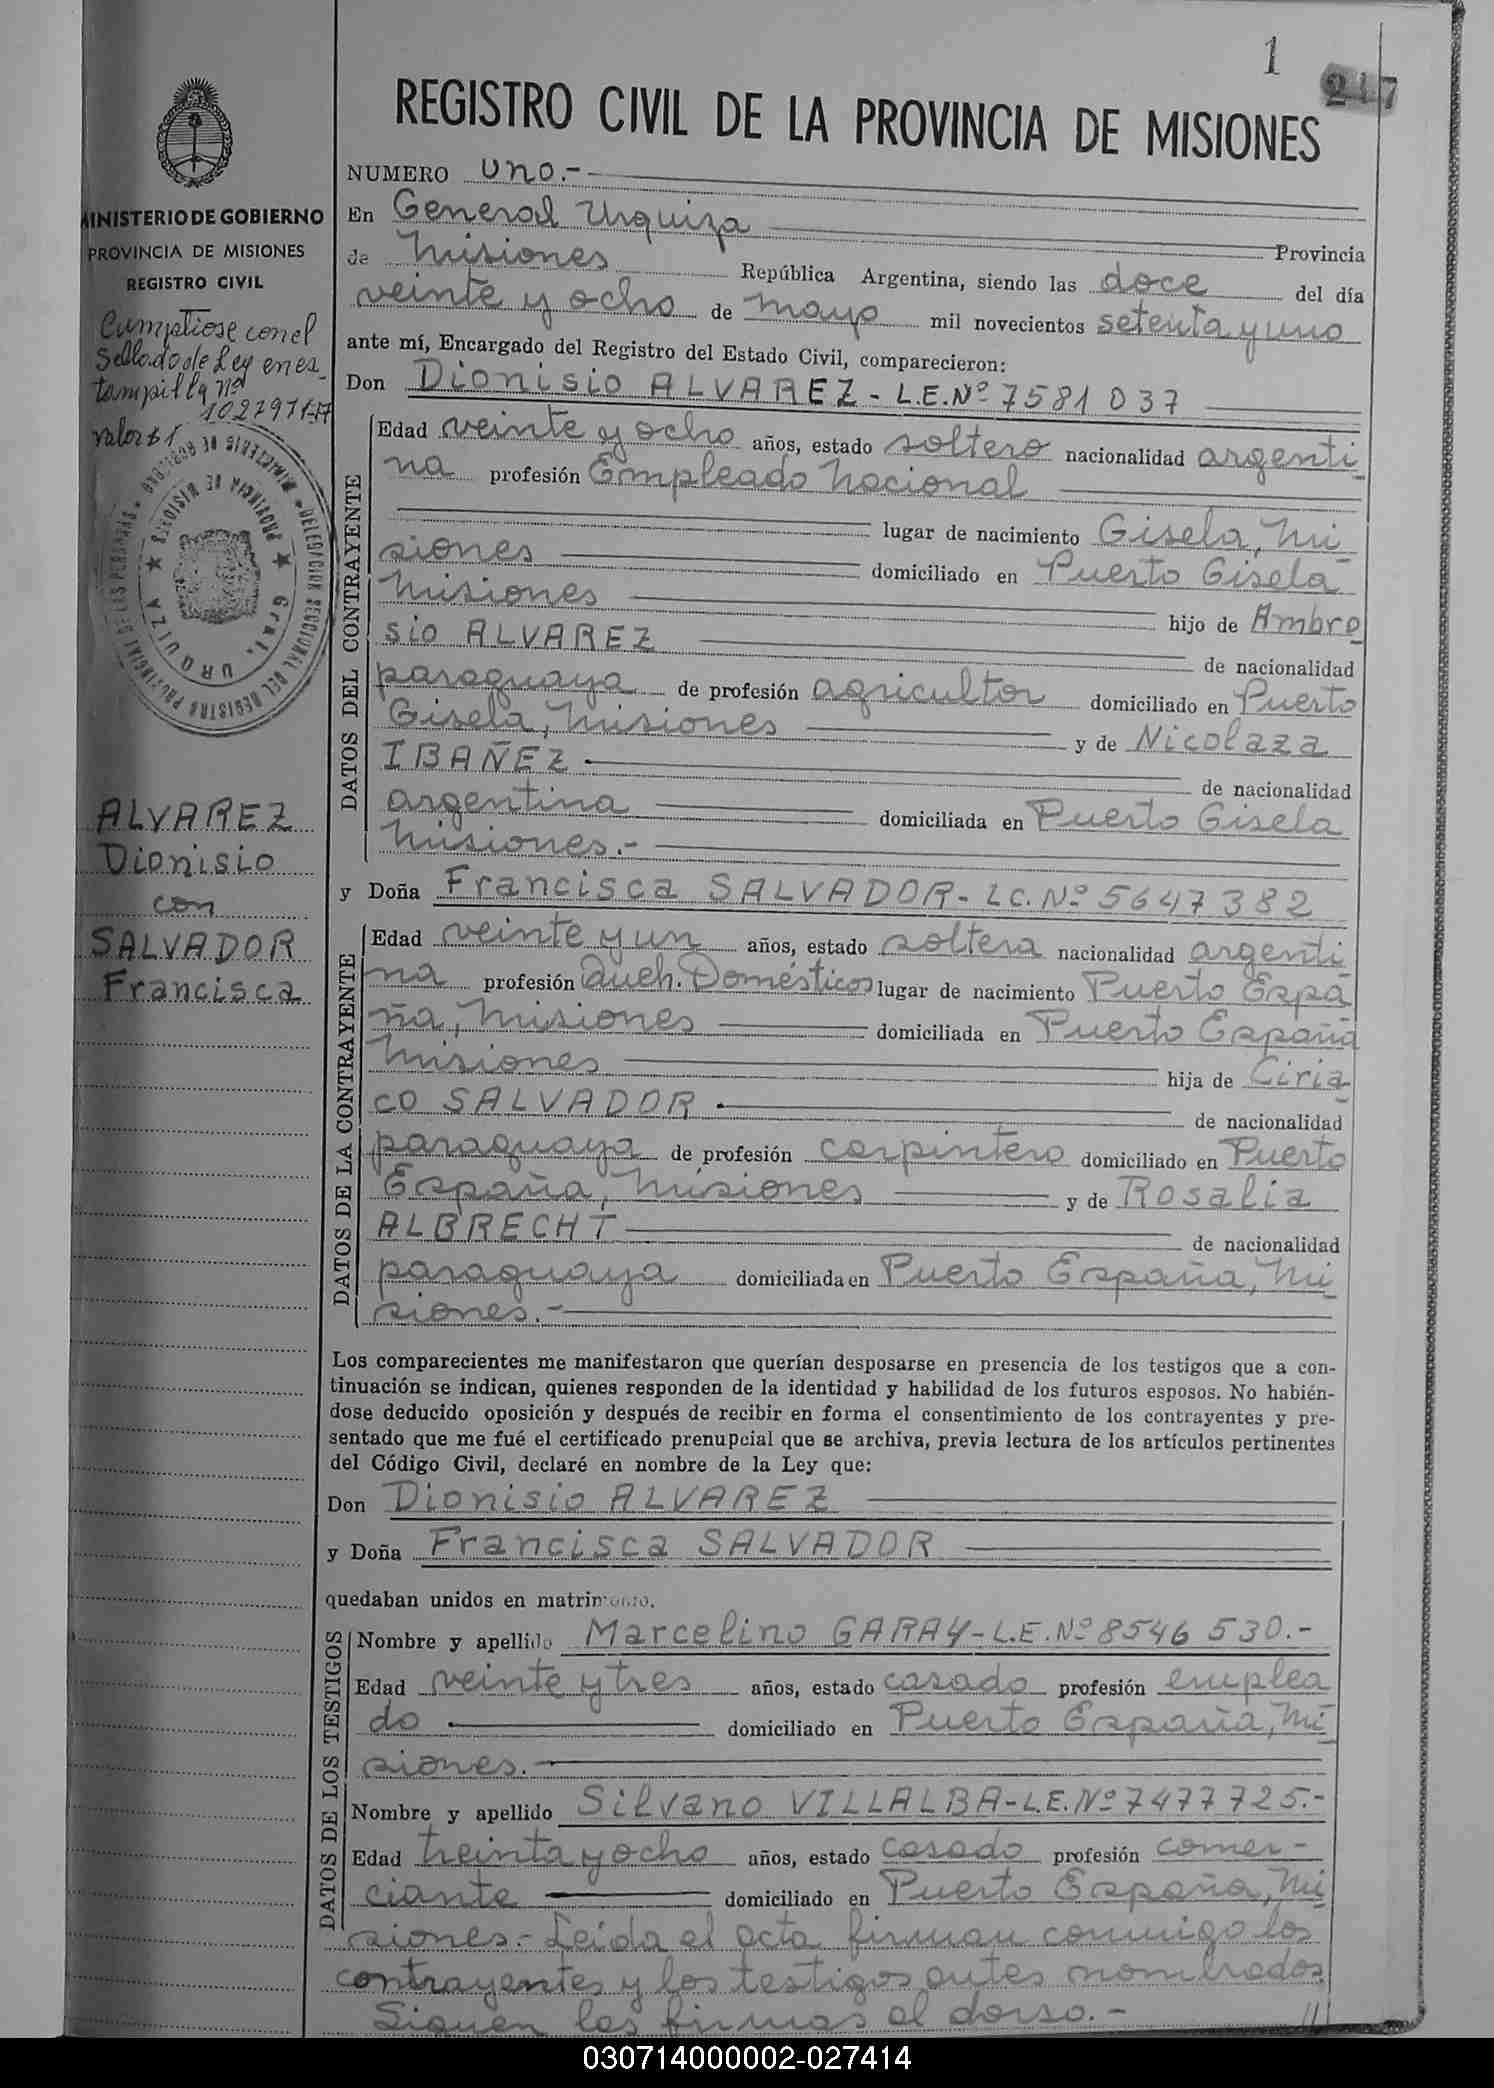 1
217
REGISTRO CIVIL DE LA PROVINCIA DE MISIONES
MINISTERIO DE GOBIERNO
PROVINCIA DE MISIONES
REGISTRO CIVIL
Cumpliose con el
Sellado de Ley en es_
tampilla nº
valor $1
DELEGACION SECCIONAL DEL REGISTRO PROVINCIAL DE LAS PERSONAS
PROVINCIA DE MISIONES
Gral. URQUIZA
ALVAREZ
Dionisio
con
SALVADOR
Francisca
NUMERO uno.-
En General Urquiza Provincia
de Misiones República Argentina, siendo las doce del día
veinte y ocho de mayo mil novecientos setenta y uno
ante mí, Encargado del Registro del Estado Civil, comparecieron:
Don Dionisio ALVAREZ - L.E.Nº 7581037
DATOS DEL CONTRAYENTE
Edad veinte y ocho años, estado soltero nacionalidad argenti_
na profesión Empleado Nacional
lugar de nacimiento Gisela, Mi_
siones domiciliado en Puerto Gisela
Misiones hijo de Ambro_
sio ALVAREZ de nacionalidad
paraguaya de profesión agricultor domiciliado en Puerto
Gisela, Misiones y de Nicolaza
IBAÑEZ de nacionalidad
argentina domiciliada en Puerto Gisela
Misiones.-
y Doña Francisca SALVADOR - L.C.Nº 5647382
DATOS DE LA CONTRAYENTE
Edad veinte y un años, estado soltera nacionalidad argenti_
na profesión Queh. Domésticos lugar de nacimiento Puerto Espa_
ña, Misiones domiciliada en Puerto España
Misiones hija de Ciria_
co SALVADOR de nacionalidad
paraguaya de profesión carpintero domiciliado en Puerto
España, Misiones y de Rosalia
ALBRECHT de nacionalidad
paraguaya domiciliada en Puerto España, Mi_
siones.-
Los comparecientes me manifestaron que querían desposarse en presencia de los testigos que a con-
tinuación se indican, quienes responden de la identidad y habilidad de los futuros esposos. No habién-
dose deducido oposición y después de recibir en forma el consentimiento de los contrayentes y pre-
sentado que me fué el certificado prenupcial que se archiva, previa lectura de los artículos pertinentes
del Código Civil, declaré en nombre de la Ley que:
Don Dionisio ALVAREZ
y Doña Francisca SALVADOR
quedaban unidos en matrimonio.
DATOS DE LOS TESTIGOS
Nombre y apellido Marcelino GARAY - L.E.Nº 8546530.-
Edad veinte y tres años, estado casado profesión emplea
do domiciliado en Puerto España, Mi_
siones.-
Nombre y apellido Silvano VILLALBA - L.E.Nº 7477725.-
Edad treinta y ocho años, estado casado profesión comer-
ciante domiciliado en Puerto España, Mi_
siones.- Leída el acta firman conmigo los
contrayentes y los testigos antes nombrados
Siguen las firmas al dorso.-
030714000002-027414